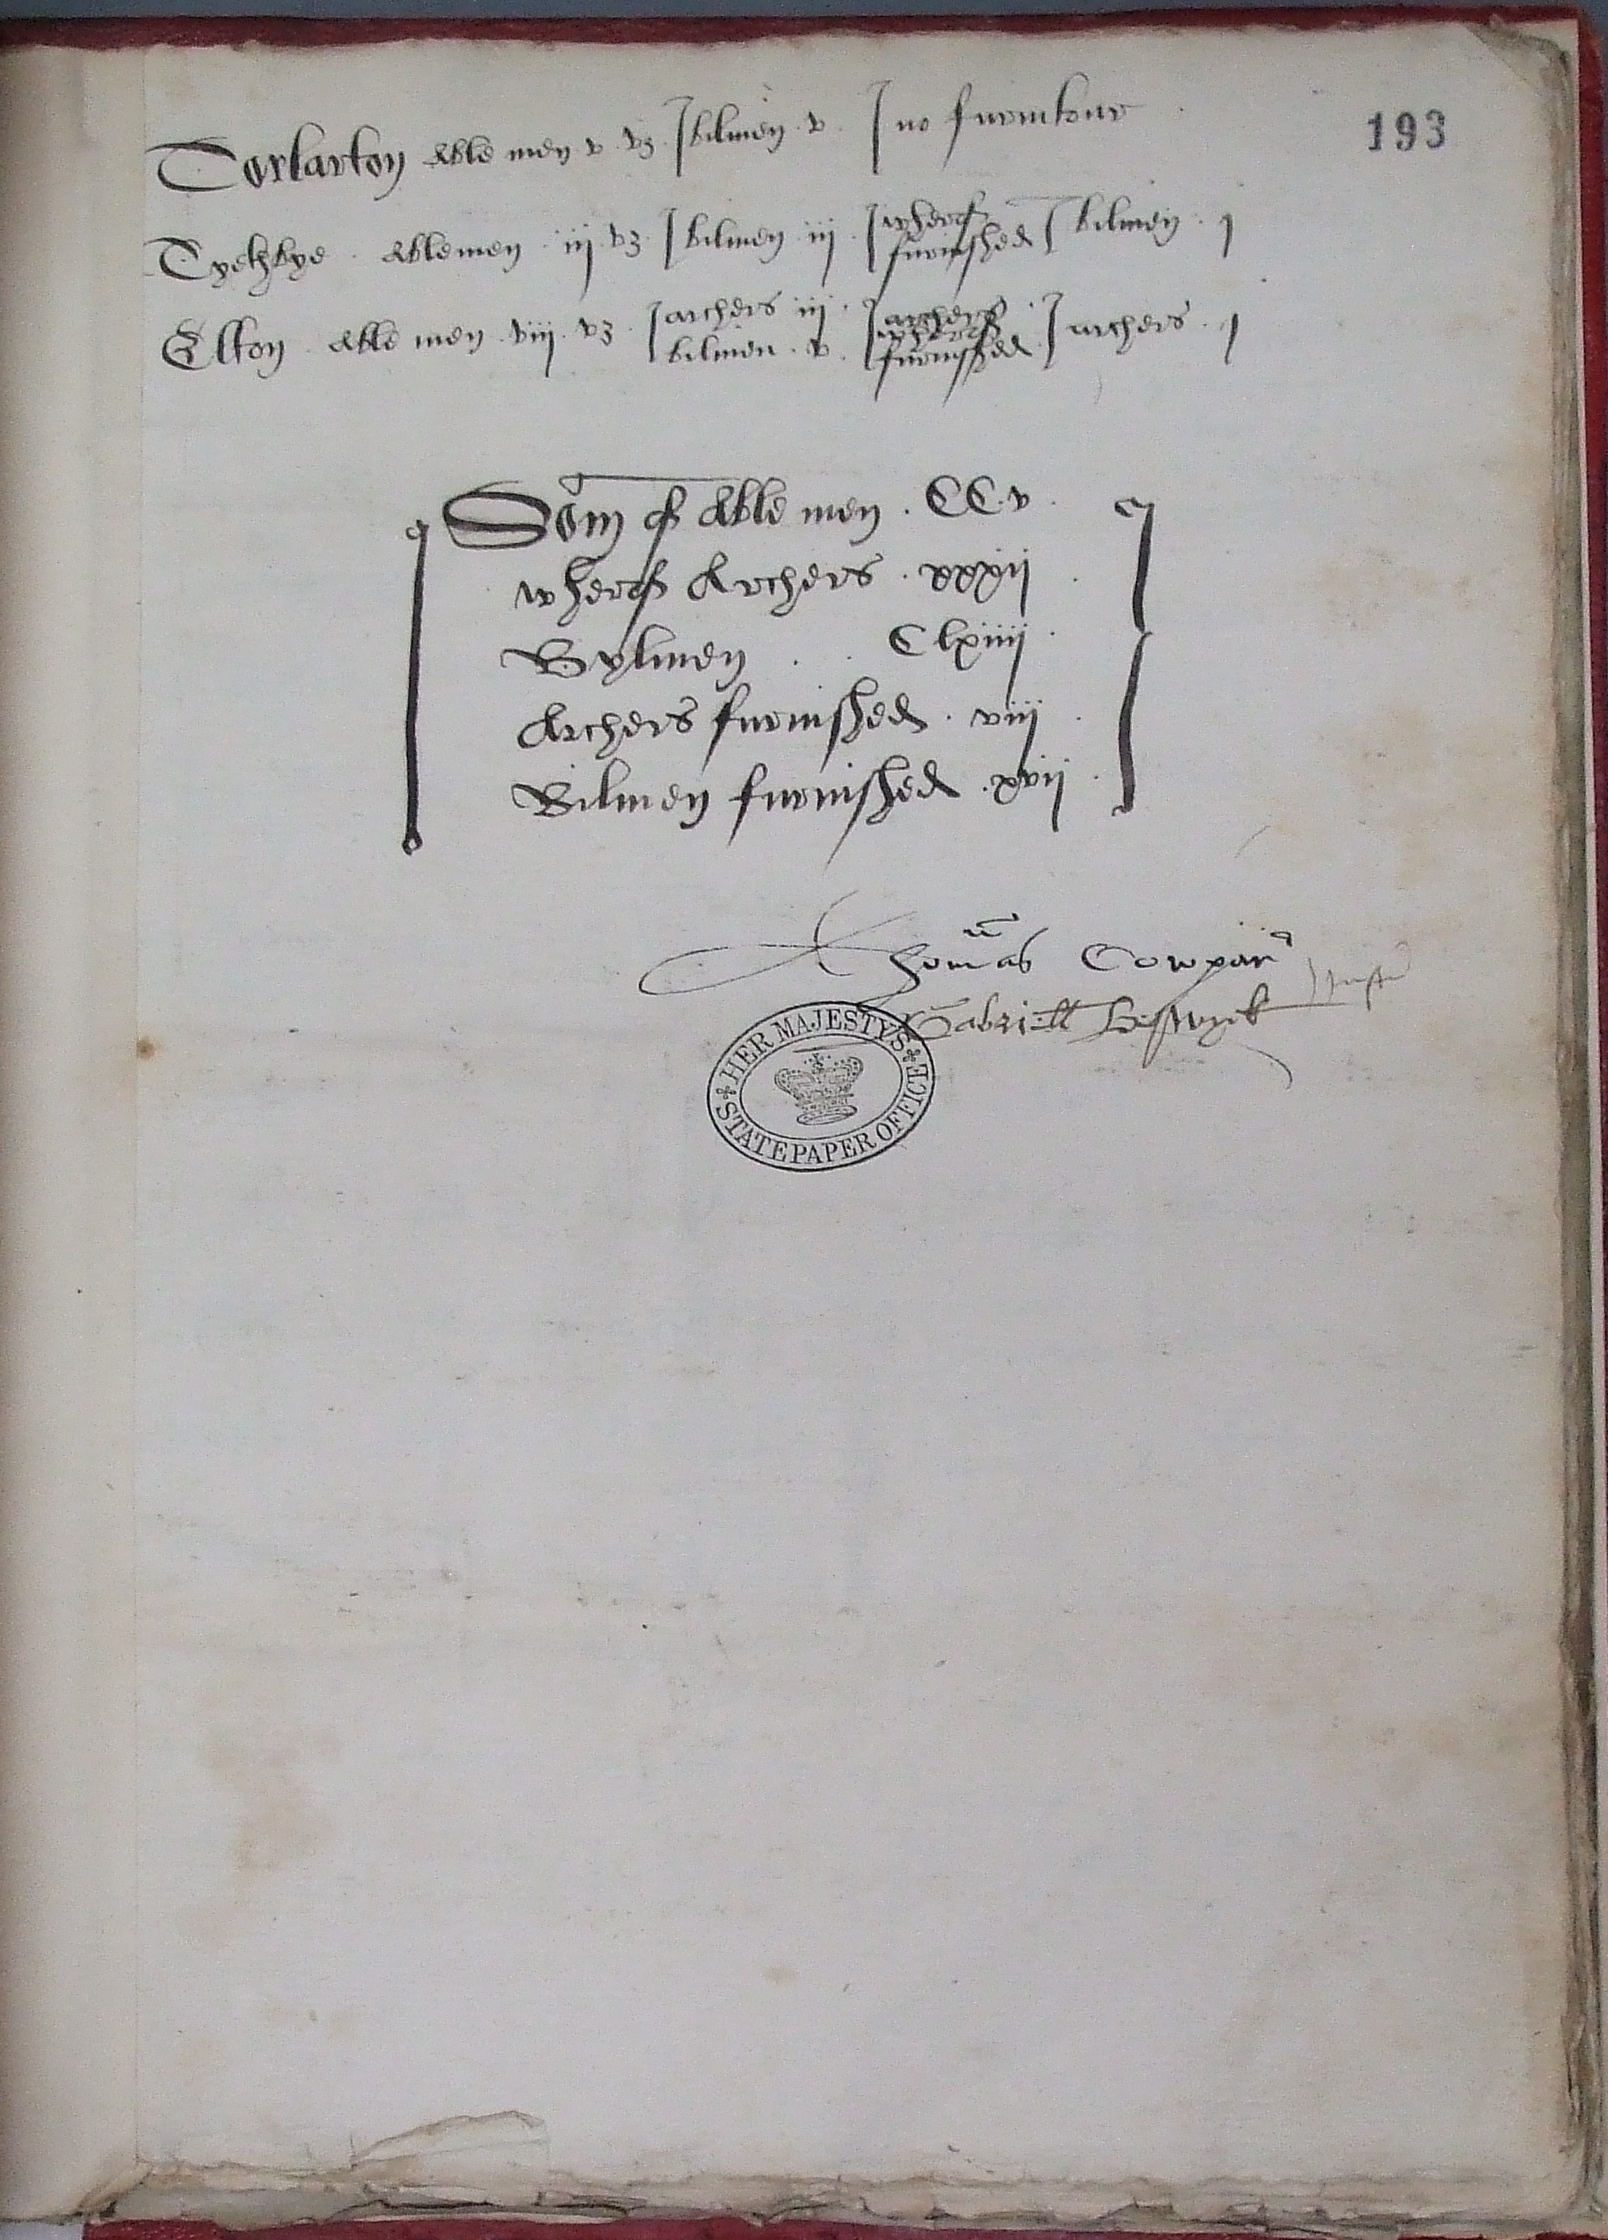 193
Torlarton Able men v vz bilmen v no furnitour
Tythbye Able men iij vz bilmen iij wherof furnished bilmen j
Elton Able men viij vz archers iij bilmen v wherof furnished archers j
Som of Able men CC v
wherof Archers xxxij
Bylmen Clxiiij
Archers furnished viij
Bilmen furnished xvij
Thomas Cowper
Gabriell Beswyck
HER MAJESTYS STATE PAPER OFFICE